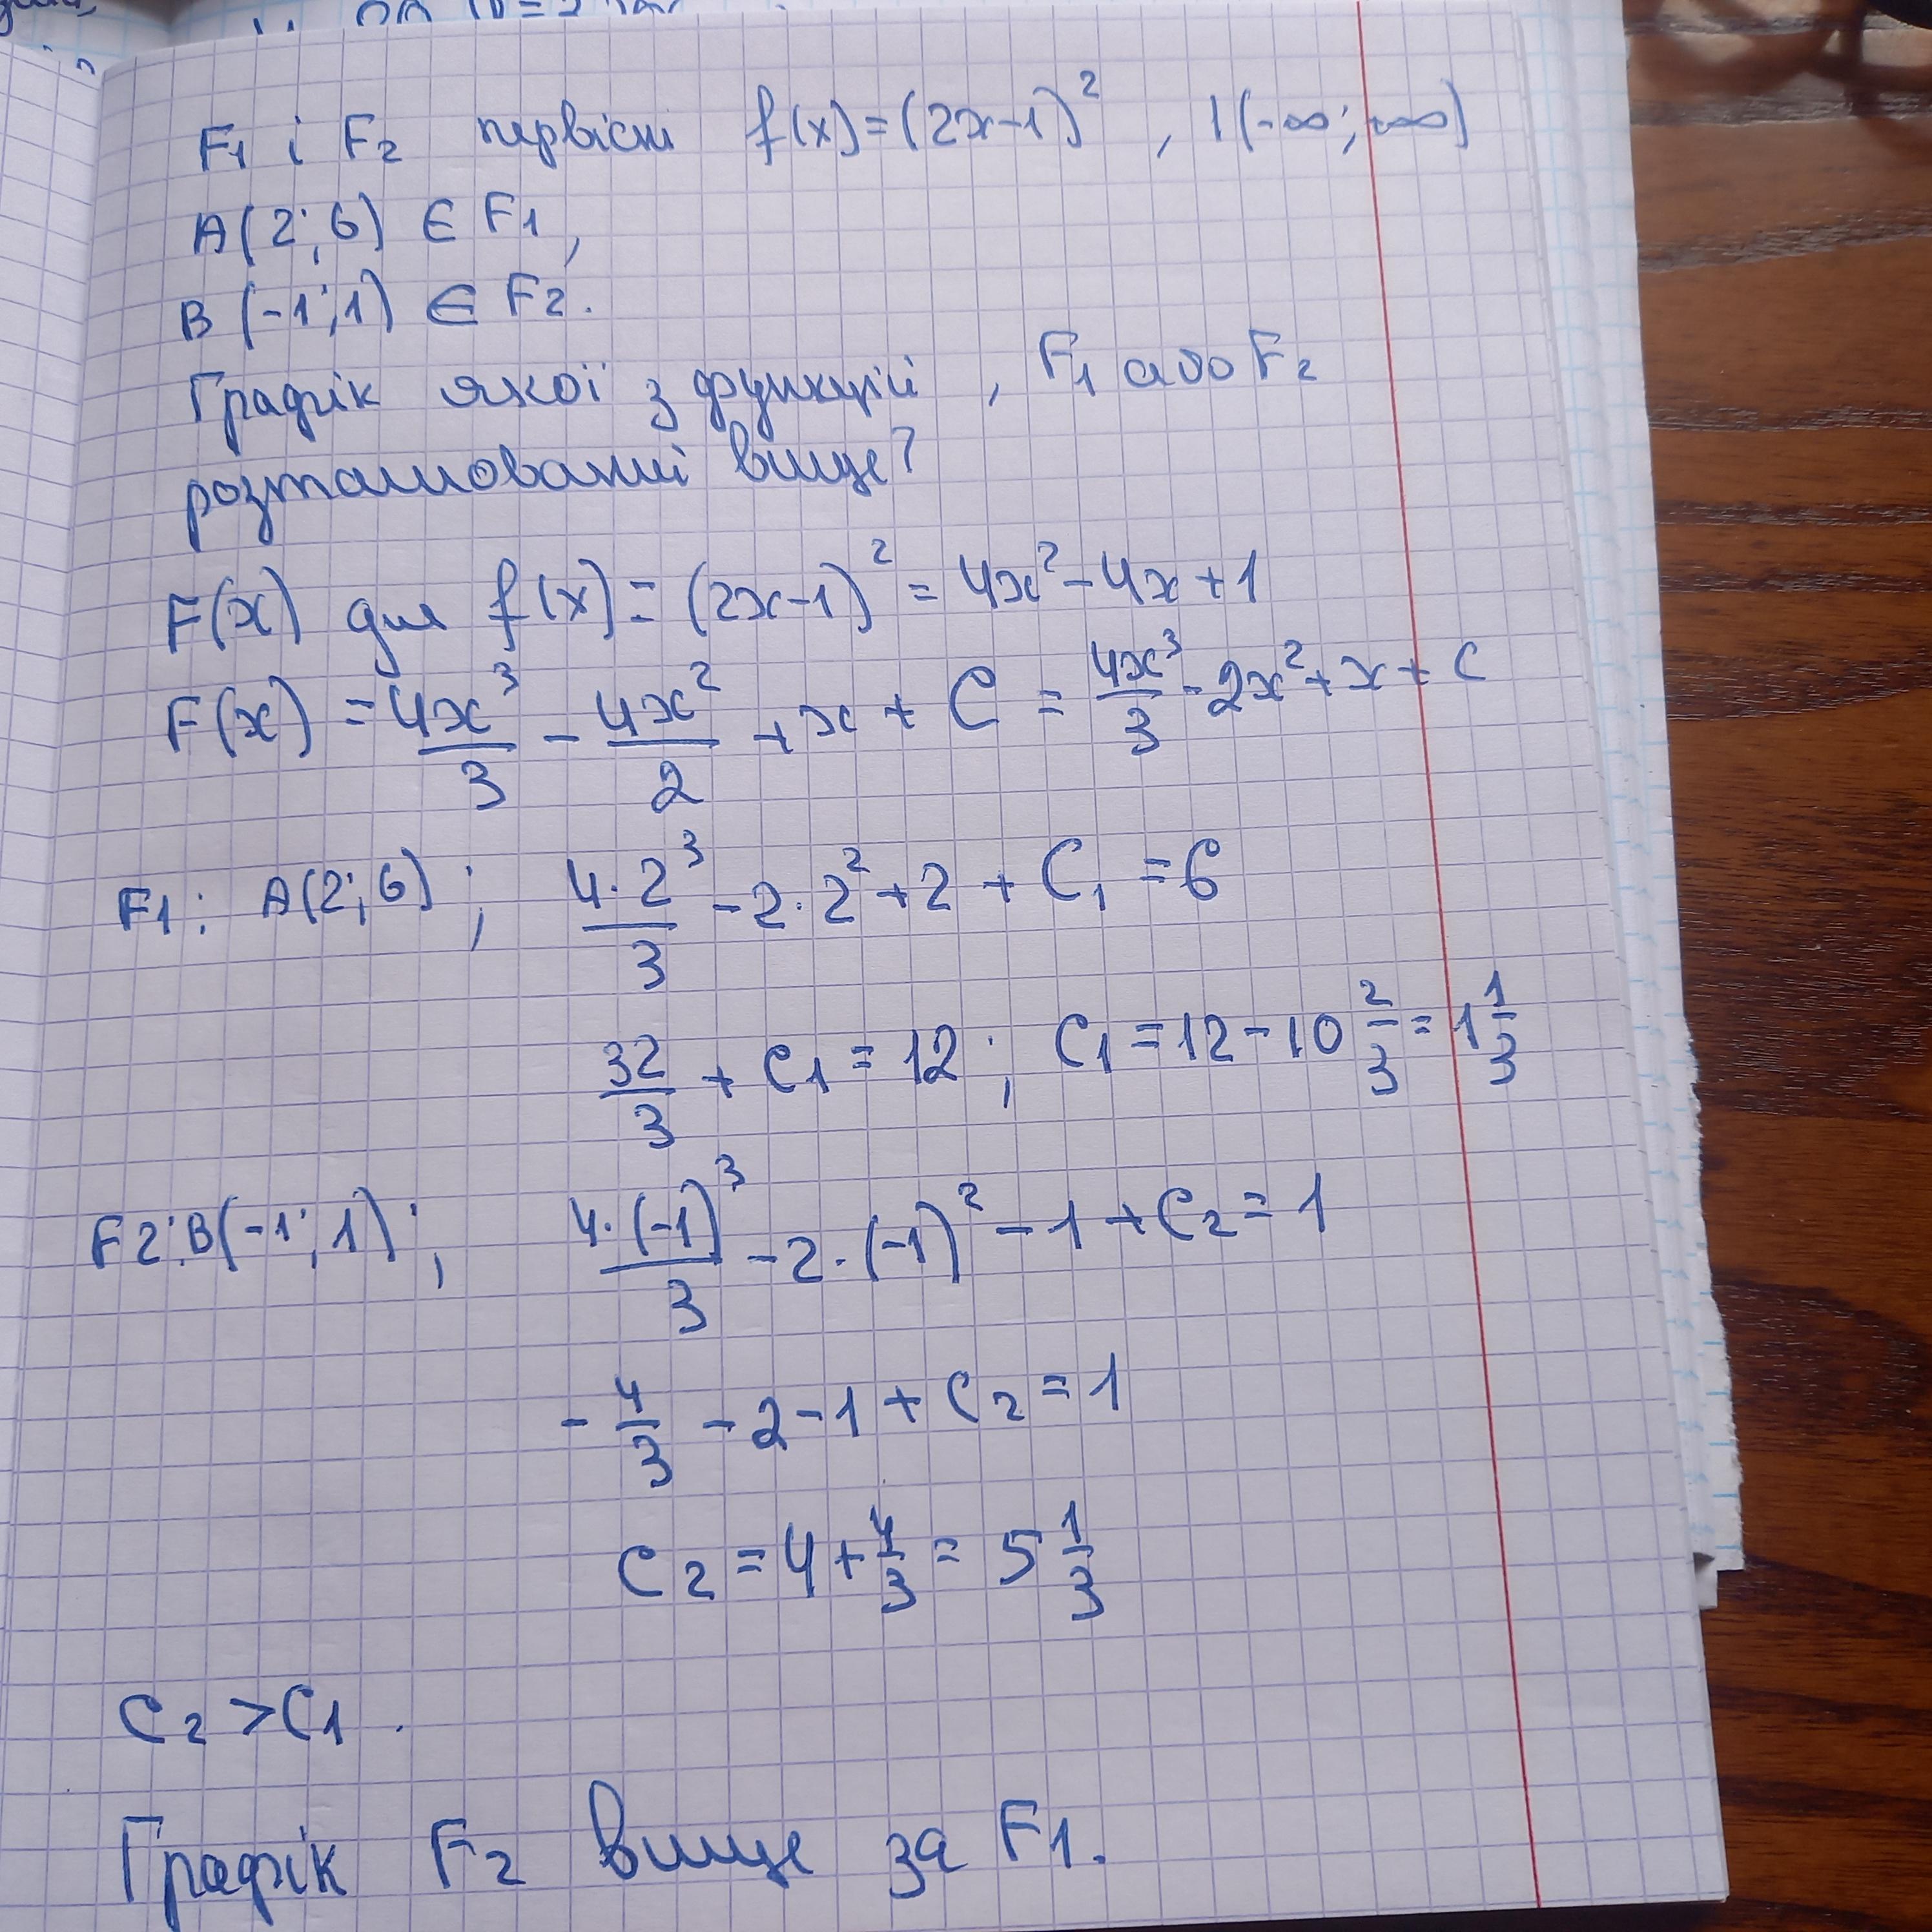 F₁ і F₂ первісні f(x)=(2x-1)², I(-∞;+∞)
A(2;6) ∈ F1,
B(-1;1) ∈ F2.
Графік якої з функцій, F₁ або F₂
розташований вище?
F(x) для f(x)=(2x-1)²=4x²-4x+1
F(x) = 4x³/3 - 4x²/2 + x + C = 4x³/3 - 2x² + x + C
F1: A(2;6); 4·2³/3 - 2·2² + 2 + C₁ = 6
32/3 + C₁ = 12; C₁ = 12 - 10 2/3 = 1 1/3
F2: B(-1;1); 4·(-1)³/3 - 2·(-1)² - 1 + C₂ = 1
- 4/3 - 2 - 1 + C₂ = 1
C₂ = 4 + 4/3 = 5 1/3
C₂ > C₁.
Графік F₂ вище за F1.